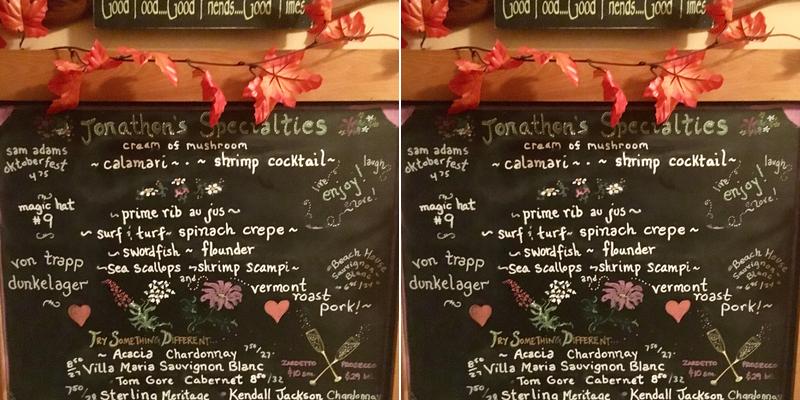 Good Food....Good Friends....Good Times
Jonathon's Specialties
cream of mushroom
~ calamari ~ . ~ shrimp cocktail ~
sam adams
oktoberfest
475
live laugh
enjoy!
love!
magic hat
#9
~ prime rib au jus ~
~ surf & turf ~ spinach crepe ~
~ swordfish ~ flounder
~ Sea scallops ~ shrimp scampi ~
and
vermont
roast
pork! ~
von trapp
dunkelager
~ Beach House
Sauvignon
Blanc ~
Try Something Different...
~ Acacia Chardonnay 750/27.
850/27 Villa Maria Sauvignon Blanc
Tom Gore Cabernet 850/32
750/ Sterling Meritage Kendall Jackson Chardonnay
Zardetto Prosecco
$10 $29
Good Food....Good Friends....Good Times
Jonathon's Specialties
cream of mushroom
~ calamari ~ . ~ shrimp cocktail ~
sam adams
oktoberfest
475
live laugh
enjoy!
love!
magic hat
#9
~ prime rib au jus ~
~ surf & turf ~ spinach crepe ~
~ swordfish ~ flounder
~ Sea scallops ~ shrimp scampi ~
and
vermont
roast
pork! ~
von trapp
dunkelager
~ Beach House
Sauvignon
Blanc ~
Try Something Different...
~ Acacia Chardonnay 750/27.
850/27 Villa Maria Sauvignon Blanc
Tom Gore Cabernet 850/32
750/ Sterling Meritage Kendall Jackson Chardonnay
Zardetto Prosecco
$10 $29